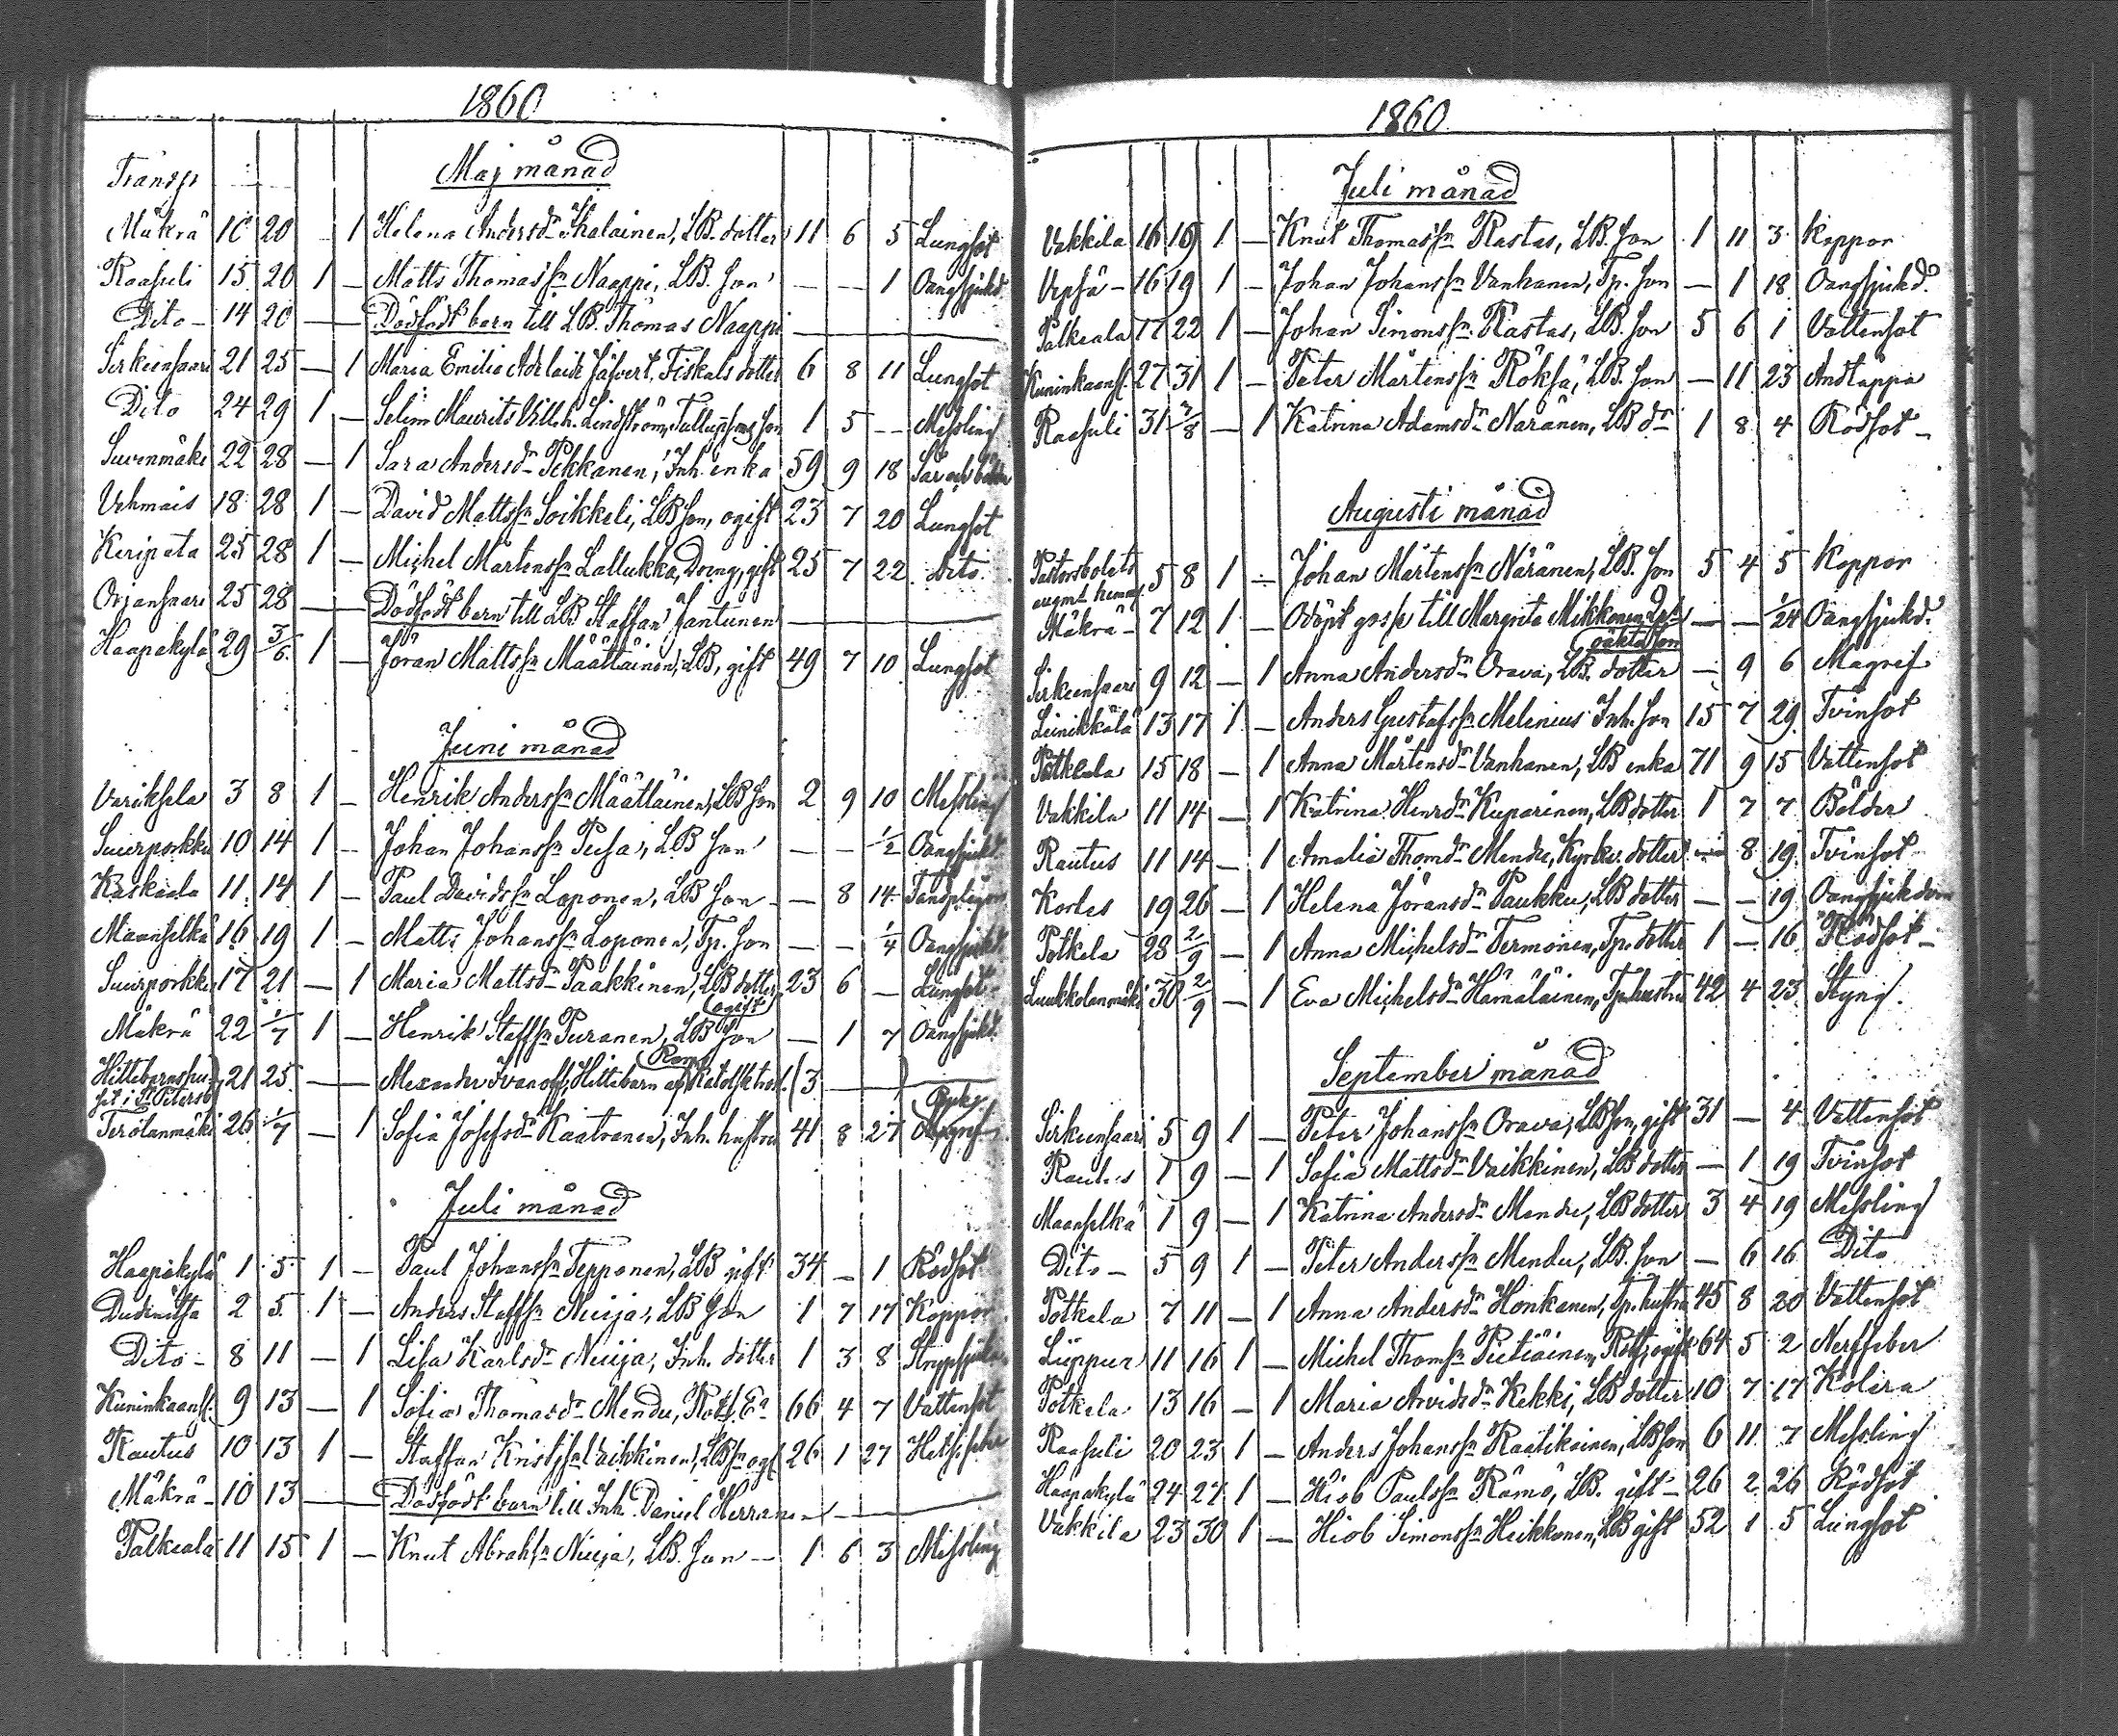 1860
Maj månad
Transp
Mäkrä 10 20 – 1 Helena Andersdr Ihalainen, LB. dotter 11 6 5 Lungsot
Raasuli 15 20 1 – Matts Thomassn Naappi, LB. Son – – 1 Oangsjukd.
Dito – 14 20 — — Dödfödt barn till LB. Thomas Naappi —
Sirkeinsaari 21 25 – 1 Maria Emilia Adelaide Jäfvert, Fiskals dotter 6 8 11 Lungsot
Dito 24 29 1 – Selim Maurits Vilh. Lindström, Son 1 5 – Messling
Suvenmäki 22 28 – 1 Sara Andersdr Pekkanen, Inh. enka 59 9 18
Vehmais 18 28 1 – David Mattssn Soikkeli, LB Son, ogift 23 7 20 Lungsot
Keripata 25 28 1 – Michel Mårtenssn Lallukka, Dreng, gift 25 7 22 Dito
Orjansaari 25 28 — — Dödfödt barn till LB Staffan Jantunen —
Haapakylä 29 3/6 1 – Jöran Mattssn Määttäinen, LB, gift 49 7 10 Lungsot
Juni månad
Variksela 3 8 1 – Henrik Anderssn Määttäinen, LB Son 2 9 10 Messling
Suurporkku 10 14 1 – Johan Johanssn Pusa, LB Son – – 1/2 Oangsjukd.
Kaskaala 11 14 1 – Paul Davidssn Loponen, LB Son – 8 14 Tandplågor
Maanselkä 16 19 1 – Matts Johanssn Loponen, Tp. Son – – 1/4 Oangsjukd.
Suurporkku 17 21 – 1 Maria Mattsdr Paakkinen, LB dotter 23 6 – Lungsot
ogift
Mäkrä 22 1/7 1 – Henrik Staffsn Puranen, LB Son – 1 7 Oangsjukd.
Hittebarnshuset i St Petersb. 21 25 — — Alexander Ivanoff, Hittebarn af Rom. Katolsk trosb. (3 — —)
Terölanmäki 26 1/7 – 1 Sofia Josefsdr Kaatranen, Inh. hustru 41 8 27
Juli månad
Haapakylä 1 5 1 – Paul Johanssn Tepponen, LB gift 34 – 1 Rödsot
Dudinitsa 2 5 1 – Anders Staffsn Nuija, LB Son 1 7 17 Koppor
Dito – 8 11 – 1 Lisa Karlsdr Nuija, Inh. dotter 1 3 8 Strypsjuka
Kuninkaanss. 9 13 – 1 Sofia Thomasdr Mendu, Rotf. Ea 66 4 7 Vattensot
Rautus 10 13 1 – Staffan Kristssn Vaikkinen, LBsn ogf 26 1 27 Hetsfeber
Mäkrä – 10 13 — — Dödfödt barn till Inh. Daniel Herranen —
Palkeala 11 15 1 – Knut Abrahsn Nuija, LB. Son – 1 6 3 Messling
1860
Juli månad
Vakkila 16 19 1 – Knut Thomassn Rastas, LB. Son 1 11 3 Koppor
Vepsä – 16 19 1 – Johan Johanssn Vanhanen, Tp. Son – 1 18 Oangsjukd.
Palkeala 17 22 1 – Johan Simonssn Rastas, LB. Son 5 6 1 Vattensot
Kuninkaanss. 27 31 1 – Peter Mårtenssn Röksä, LB. Son – 11 23 Andtäppa
Raasuli 31 7/8 – 1 Katrina Adamsdr Näränen, LB dr 1 8 4 Rödsot
Augusti månad
Pastorsbolets augmt hemm. 5 8 1 – Johan Mårtenssn Näränen, LB. Son 5 4 5 Koppor
Mäkrä – 7 12 1 – Odöpt gosse till Margreta Mikkonen oäkta son – – 1/24 Oangsjukd.
Sirkeinsaari 9 12 – 1 Anna Andersdr Orava, LB. dotter – 9 6 Magref
Liinikkälä 13 17 1 – Anders Gustafssn Melenius Inh. Son 15 7 29 Tvinsot
Potkela 15 18 – 1 Anna Mårtensdr Vanhanen, LB enka 71 9 15 Vattensot
Vakkila 11 14 – 1 Katrina Henrdr Kuparinen, LB dotter 1 7 7 Bölder
Rautus 11 14 – 1 Amalia Thomdr Mendu, Kyrkv. dotter – 8 19 Tvinsot
Korles 19 26 – 1 Helena Jöransdr Paukku, LB dotter – – 19 Oangsjukdom
Potkela 28 2/9 – 1 Anna Michelsdr Termonen, Tp. dotter 1 – 16 Rödsot
Luukkolanmäki 30 2/9 – 1 Eva Michelsdr Hämäläinen, Tp. hustru 42 4 23 Styng
September månad
Sirkeinsaari 5 9 1 – Peter Johanssn Orava, LB Son, gift 31 – 4 Vattensot
Rautus 1 9 – 1 Sofia Mattsdr Vaikkinen, LB dotter – 1 19 Tvinsot
Maanselkä 1 9 – 1 Katrina Andersdr Mendu, LB dotter 3 4 19 Messling
Dito – 5 9 1 – Peter Anderssn Mendu, LB. Son – 6 16 Dito
Potkela 7 11 – 1 Anna Andersdr Honkanen, Tp. hustru 45 8 20 Vattensot
Lüppur 11 16 1 – Michel Thomsn Putiäinen, Rotf, ogift 64 5 2 Nerffeber
Potkela 13 16 – 1 Maria Arvidsdr Kekki, LB dotter 10 7 17 Kolera
Raasuli 20 23 1 – Anders Johanssn Raatikainen, LB Son 6 11 7 Messling
Haapakylä 24 27 1 – Hiob Paulssn Rämö, LB. gift – 26 2 26 Rödsot
Vakkila 23 30 1 – Hiob Simonssn Heikkonen, LB gift 52 1 5 Lungsot